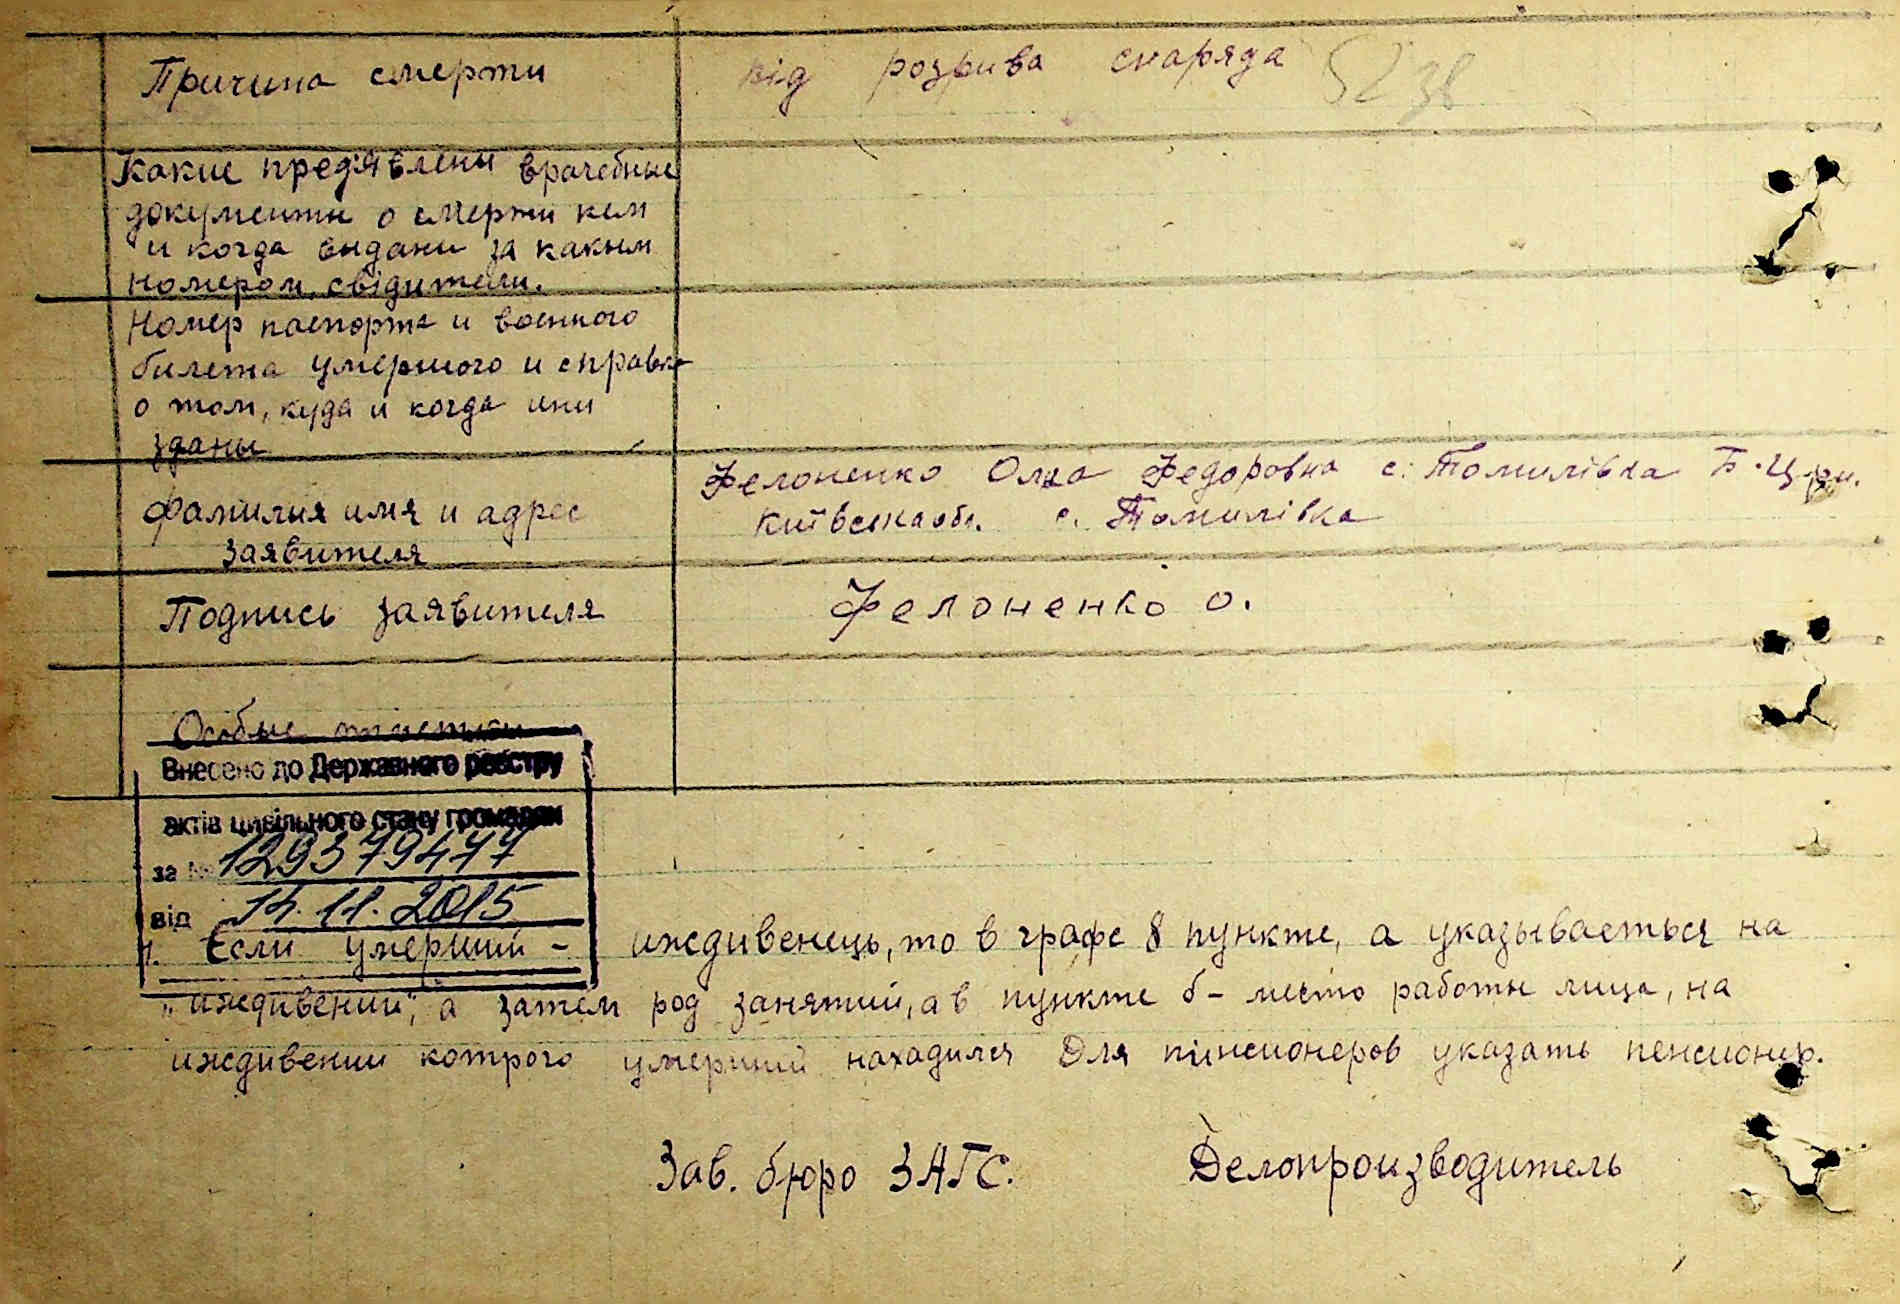 Причина смерти від розрива снаряда
Какие предъявлени врачебные
документы о смерти кем
и когда выдани за каким
номером, свідители.
Номер паспорта и военного
билета умершого и справка
о том, куда и когда они
зданы
Фелоненко Олха Федоровна с. Томилівка Б.Црк.
Київска обл. с. Томилівка
фамилия имя и адрес
заявителя
Подпись заявителя Фелоненко О.
Особые отметки
Внесено до Державного реєстру
актів цивільного стану громадян
за № 129379477
від 14.11.2015
1. Если умерший - иждивенець, то в графе 8 пункте, а указываеться на
"иждивении", а затем род занятий, а в пункте б - место работы лица, на
иждивении котрого умерший находился Для пинсионеров указать пенсионер.
Зав. бюро ЗАГС. Делопроизводитель